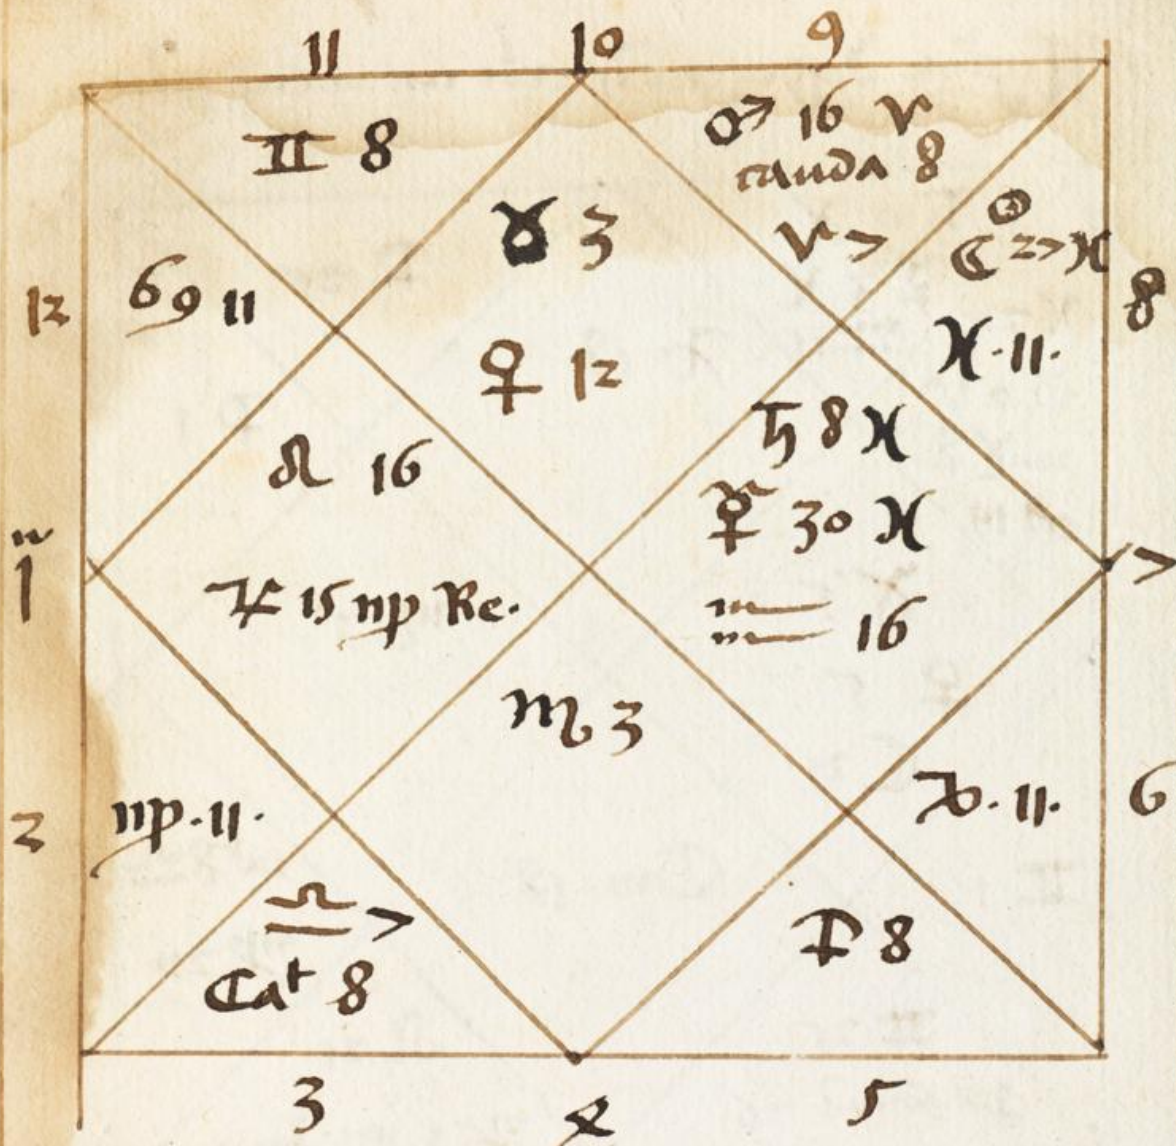 11
10
9
♊ 8
♂ 16 ♈
cauda 8
♉ 3
♈ 7
☉
☾ 27 ♓
12
♋ 11
8
♓ · 11 ·
♀ 12
♄ 8 ♓
♌ 16
☿ 30 ♓
1
♃ 15 ♍ Re.
♒ 16
7
♏ 3
2
♍ · 11 ·
♑ · 11 ·
6
♎ 7
Cat 8
♐ 8
3
4
5